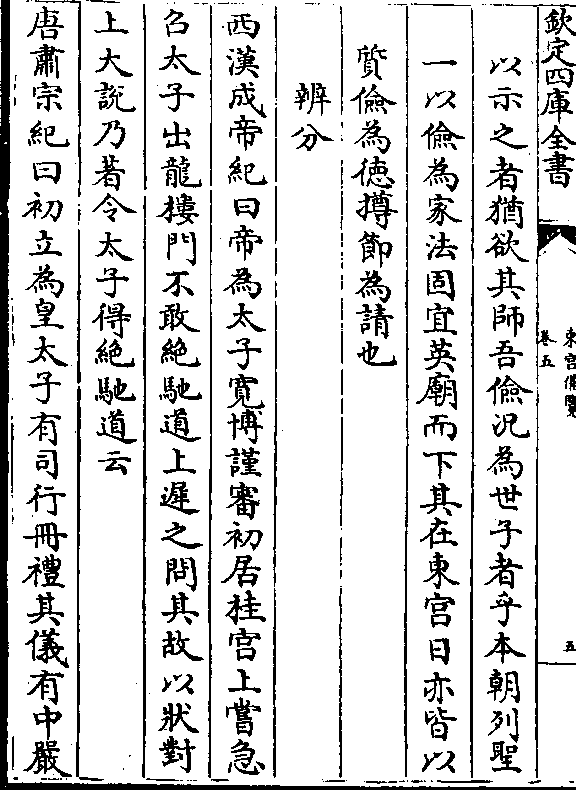 欽定四庫全書
東宮備覽
卷五
五
以示之者猶欲其師吾儉況為世子者乎本朝列聖
一以儉為家法固宜英廟而下其在東宮日亦皆以
質儉為德撙節為請也
辨分
西漢成帝紀曰帝為太子寛博謹審初居桂宮上嘗急
召太子出龍樓門不敢絶馳道上遲之問其故以狀對
上大說乃著令太子得絶馳道云
唐肅宗紀曰初立為皇太子有司行冊禮其儀有中嚴